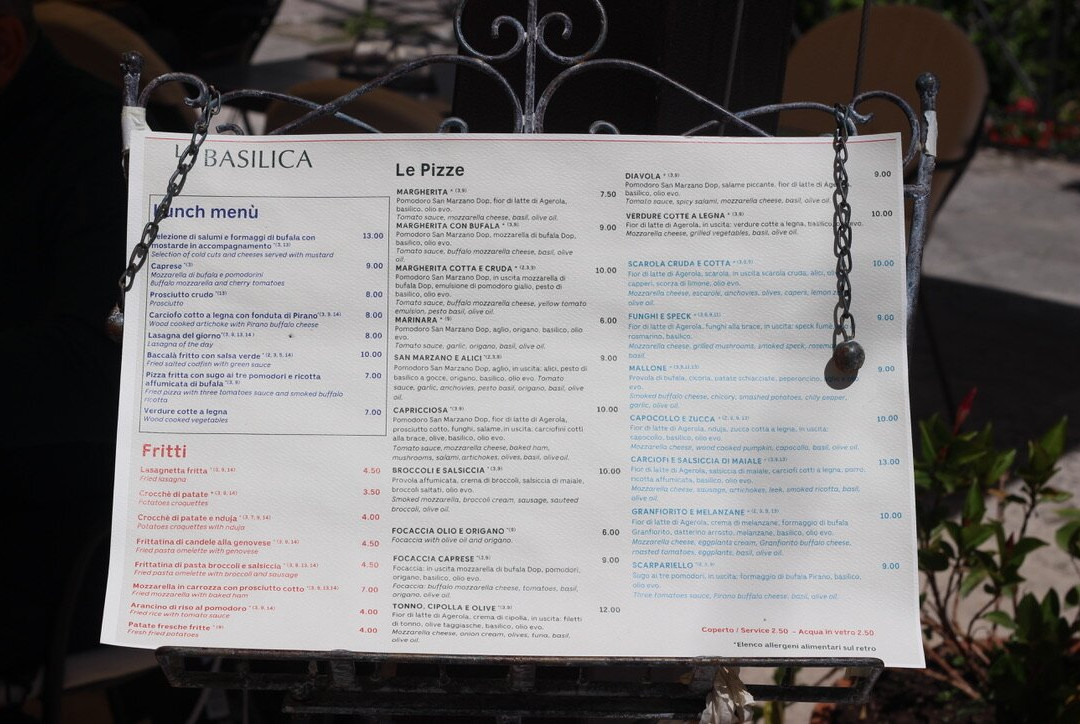 BASILICA
Lunch menù
Selezione di salumi e formaggi di bufala con 13.00
mostarde in accompagnamento *(3, 13)
Selection of cold cuts and cheeses served with mustard
Caprese *(3) 9.00
Mozzarella di bufala e pomodorini
Buffalo mozzarella and cherry tomatoes
Prosciutto crudo *(13) 8.00
Prosciutto
Carciofo cotto a legna con fonduta di Pirano*(3, 9, 14) 8.00
Wood cooked artichoke with Pirano buffalo cheese
Lasagna del giorno 8.00
Lasagna of the day
Baccalà fritto con salsa verde 10.00
Fried salted codfish with green sauce
Pizza fritta con sugo ai tre pomodori e ricotta 7.00
affumicata di bufala
Fried pizza with three tomatoes sauce and smoked buffalo
ricotta
Verdure cotte a legna 7.00
Wood cooked vegetables
Fritti
Lasagnetta fritta 4.50
Fried lasagna
Crocchè di patate 3.50
Potatoes croquettes
Crocchè di patate e nduja 4.00
Potatoes croquettes with nduja
Frittatina di candele alla genovese 4.50
Fried pasta omelette with genovese
Frittatina di pasta broccoli e salsiccia 4.50
Fried pasta omelette with broccoli and sausage
Mozzarella in carrozza con prosciutto cotto 7.00
Fried mozzarella with baked ham
Arancino di riso al pomodoro 4.00
Fried rice with tomato sauce
Patate fresche fritte 4.00
Fresh fried potatoes
Le Pizze
MARGHERITA * (3,9) 7.50
Pomodoro San Marzano Dop, fior di latte di Agerola,
basilico, olio evo.
Tomato sauce, mozzarella cheese, basil, olive oil.
MARGHERITA CON BUFALA * (3,9) 9.00
Pomodoro San Marzano Dop, mozzarella di bufala Dop,
basilico, olio evo.
Tomato sauce, buffalo mozzarella cheese, basil, olive
oil.
MARGHERITA COTTA E CRUDA 10.00
Pomodoro San Marzano Dop, in uscita mozzarella di
bufala Dop, emulsione di pomodoro giallo, pesto di
basilico, olio evo.
Tomato sauce, buffalo mozzarella cheese, yellow tomato
emulsion, pesto basil, olive oil.
MARINARA * (9) 6.00
Pomodoro San Marzano Dop, aglio, origano, basilico, olio
evo.
Tomato sauce, garlic, origano, basil, olive oil.
SAN MARZANO E ALICI 9.00
Pomodoro San Marzano Dop, aglio, in uscita: alici, pesto di
basilico a gocce, origano, basilico, olio evo. Tomato
sauce, garlic, anchovies, pesto basil, origano, basil, olive
oil
CAPRICCIOSA *(3,9) 10.00
Pomodoro San Marzano Dop, fior di latte di Agerola,
prosciutto cotto, funghi, salame, in uscita: carciofini cotti
alla brace, olive, basilico, olio evo.
Tomato sauce, mozzarella cheese, baked ham,
mushrooms, salami, artichokes, olives, basil, olive oil.
BROCCOLI E SALSICCIA *(3,9) 10.00
Provola affumicata, crema di broccoli, salsiccia di maiale,
broccoli saltati, olio evo.
Smoked mozzarella, broccoli cream, sausage, sauteed
broccoli, olive oil.
FOCACCIA OLIO E ORIGANO *(9) 6.00
Focaccia with olive oil and origano.
FOCACCIA CAPRESE *(3,9) 9.00
Focaccia; in uscita mozzarella di bufala Dop, pomodori,
origano, basilico, olio evo.
Focaccia; buffalo mozzarella cheese, tomatoes, basil,
origano, olive oil.
TONNO, CIPOLLA E OLIVE 12.00
Fior di latte di Agerola, crema di cipolla, in uscita: filetti
di tonno, olive taggiasche, basilico, olio evo.
Mozzarella cheese, onion cream, olives, tuna, basil,
olive oil.
DIAVOLA * (3,9) 9.00
Pomodoro San Marzano Dop, salame piccante, fior di latte di
basilico, olio evo.
Tomato sauce, spicy salami, mozzarella cheese, basil, olive oil.
VERDURE COTTE A LEGNA * (3,9) 10.00
Fior di latte di Agerola, in uscita: verdure cotte a legna, evo.
Mozzarella cheese, grilled vegetables, basil, olive oil.
SCAROLA CRUDA E COTTA 10.00
Fior di latte di Agerola, scarola, in uscita scarola cruda, alici,
capperi, scorza di limone, olio evo.
Mozzarella cheese, escarole, anchovies, olives, capers, lemon
olive oil.
FUNGHI E SPECK 9.00
Fior di latte di Agerola, funghi alla brace, in uscita: speck
rosmarino, basilico.
Mozzarella cheese, grilled mushrooms, smoked speck,
basil.
MALLONE 9.00
Provola di bufala, cicoria, patate schiacciate, peperoncino,
evo.
Smoked buffalo cheese, chicory, smashed potatoes, chily pepper,
garlic, olive oil.
CAPOCOLLO E ZUCCA 10.00
Fior di latte di Agerola, nduja, zucca cotta a legna, in uscita:
capocollo, basilico, olio evo.
Mozzarella cheese, wood cooked pumpkin, capocollo, basil, olive oil.
CARCIOFI E SALSICCIA DI MAIALE 13.00
Fior di latte di Agerola, salsiccia di maiale, carciofi cotti a legna, porro,
ricotta affumicata, basilico, olio evo.
Mozzarella cheese, sausage, artichokes, leek, smoked ricotta, basil,
olive oil.
GRANFIORITO E MELANZANE 10.00
Fior di latte di Agerola, crema di melanzane, formaggio di bufala
Granfiorito, datterino arrosto, melanzane, basilico, olio evo.
Mozzarella cheese, eggplants cream, Granfiorito buffalo cheese,
roasted tomatoes, eggplants, basil, olive oil.
SCARPARIELLO 9.00
Sugo ai tre pomodori, in uscita: formaggio di bufala Pirano, basilico,
olio evo.
Three tomatoes sauce, Pirano buffalo cheese, basil, olive oil.
Coperto / Service 2.50 - Acqua in vetro 2.50
*Elenco allergeni alimentari sul retro